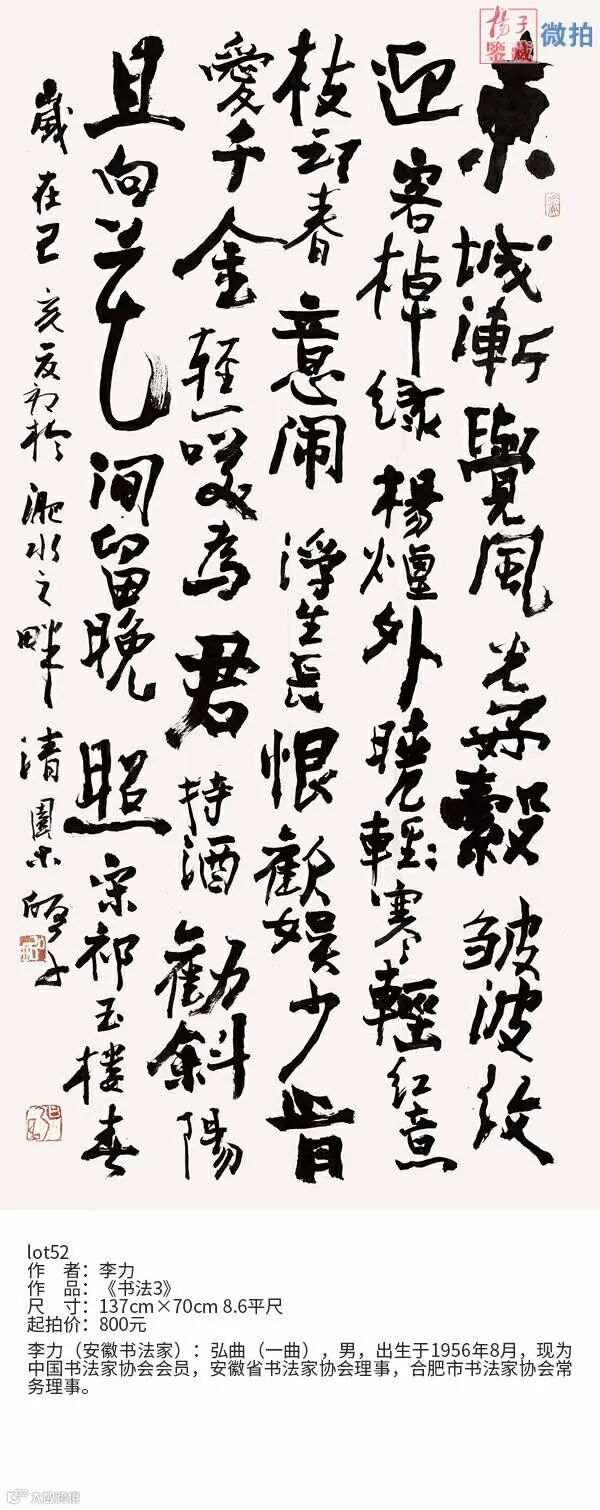 揚子
鑒藏
微拍
東城漸覺風光好縠皱波纹
迎客棹绿楊煙外曉輕寒輕红意
枝頭春意闹浮生長恨歡娱少肯
愛千金輕一笑為君持酒勸斜陽
且向花間留晚照宋祁玉樓春
歲在己亥夏初於淝水之畔清園
lot52
作 者：李力
作 品：《书法3》
尺 寸：137cm×70cm 8.6平尺
起拍价：800元
李力（安徽书法家）：弘曲（一曲），男，出生于1956年8月，现为
中国书法家协会会员，安徽省书法家协会理事，合肥市书法家协会常
务理事。
大数跨境